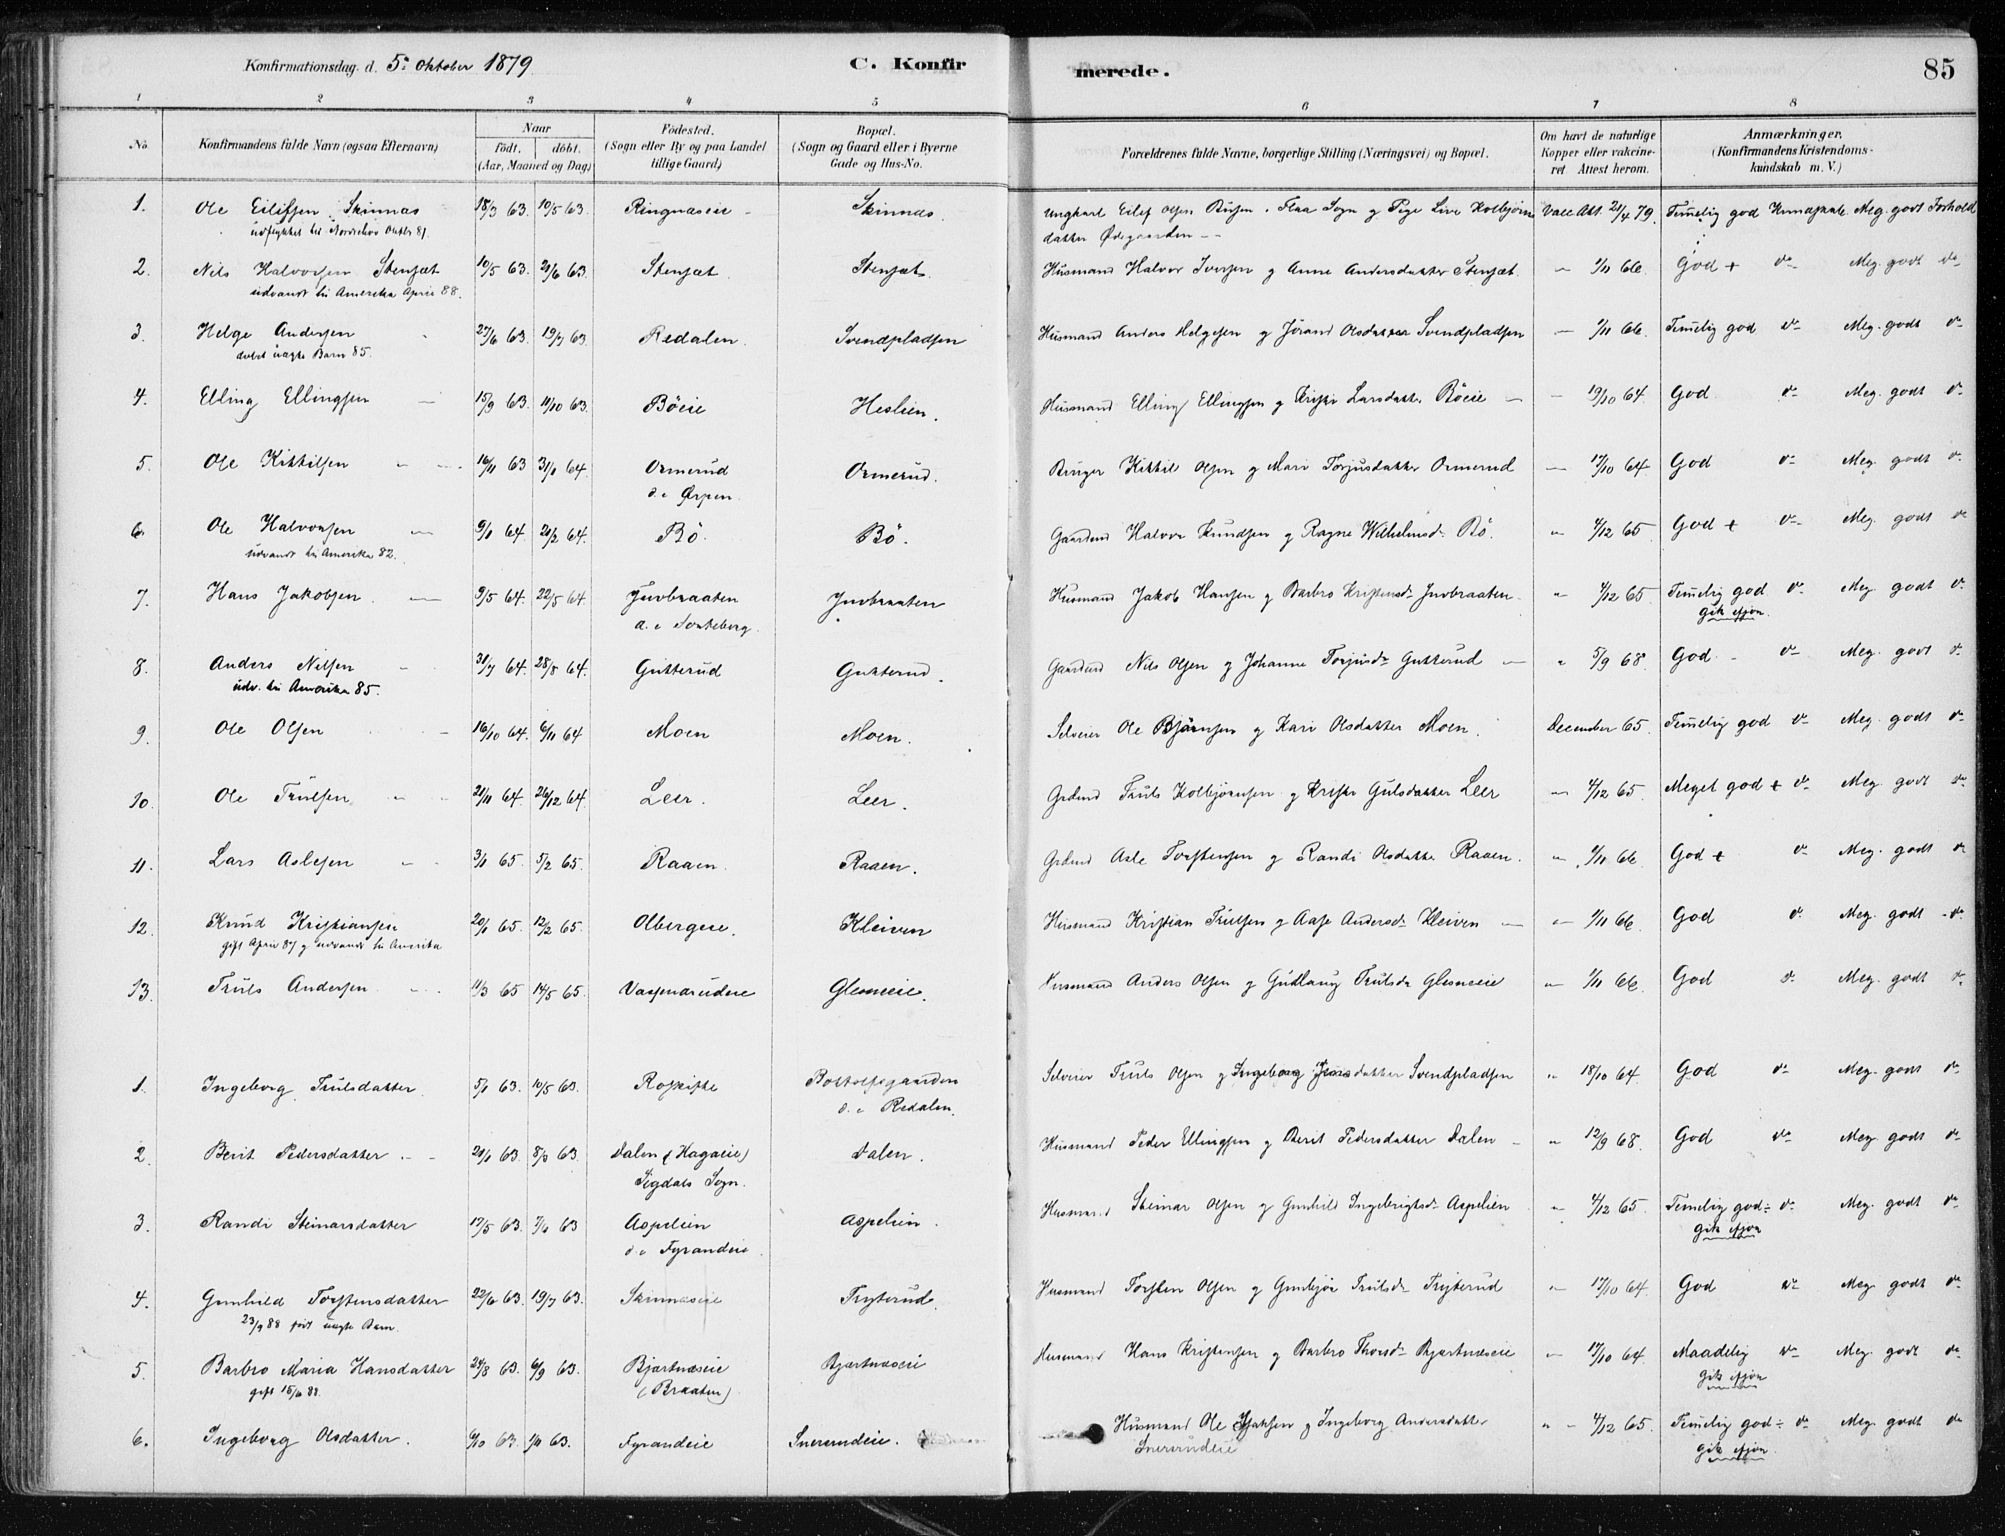 Konfirmationsdag d. 5. Oktober 1879. C. Konfirmerede. 85
1 2 3 4 5 6 7 8
No. Konfirmandens fulde Navn (ogsaa Efternavn) Naar födt. döbt. (Aar, Maaned og Dag) Födested. (Sogn eller By og paa Landet tillige Gaard) Bopæl. (Sogn og Gaard eller i Byerne Gade og Hus-No. Forældrenes fulde Navne, borgerlige Stilling (Næringsvei) og Bopæl. Om havt de naturlige Kopper eller vakcineret Attest herom. Anmærkninger. (Konfirmandens Kristendomskundskab m. V.)
1. Ole Eilifsen Skinnæs 18/3 63 10/5 63. Ringnæseie Skinnæs. Ungkarl Eilef Olsen Flaa Sogn g Pige Live Kolbjørns Vacc. Att. 21/4 79. Temelig god Kundskab Meg. godt Forhold
udflyttet til Oktbr 81. datter Ødegaarden
2. Nils Halvorsen Stensæt 10/5 63. 21/6 63. Stensæt Stensæt. Husmand Halvor Iversen g Anne Andersdatter Stensæt. 1/11 66. God + do Meg. godt do
udvandr. til Amerika April 88.
3. Helge Andersen 27/6 63. 19/7 63 Redalen. Svendpladsen Husmand Anders Helgesen g Jørand Olsdatter Svendpladsen 1/11 66. Temelig god do Meg. godt do
døbt uægte Barn 85.
4. Elling Ellingsen 15/9 63. 11/10 63. Böeie Heslien. Husmand Elling Ellingsen g Kristi Larsdatter Böeie 19/10 64. God do Meg. godt do
5. Ole Kittilsen 16/11 63 31/1 64. Ormerud Ormerud. Bruger Kittil Olsen g Mari Torjusdatter Ormerud 17/10 64 God do Meg. godt do
Ørpen.
6. Ole Halvorsen 9/1 64. 21/2 64. Bö. Bö. Gaardmd Halvor Knudsen g Ragne Wilhelmsd. Bö. 4/12 65 God + do Meg. godt do
udvandr. til Amerika 82.
7. Hans Jakobsen 9/5 64. 22/5 64. Juvbraaten Juvbraaten Husmand Jakob Hansen g Barbro Kristensd. Juvbraaten 4/12 65 Temelig god do Meg. godt do
gik igjen.
8. Anders Nilsen 31/7 64. 28/8 64. Gutterud Gutterud. Gaardmd Nils Olsen g Johanne Torjusd. Gutterud 5/9 68. God do Meg. godt do
udv. til Amerika 85.
9. Ole Olsen 16/10 64. 6/11 64 Moen Moen. Selveier Ole Bjørnsen g Kari Olsdatter Moen. December 65. Temelig god do Meg. godt do
10. Ole Trulsen 21/11 64. 26/12 64. Leer. Leer. Grdmd Truls Kolbjørnsen g Kristi Gulsdatter Leer 4/12 65. Meget god + do Meg. godt do
11. Lars Aslesen 3/1 65. 5/2 65. Raaen. Raaen. Grdmd Asle Torstensen g Randi Olsdatter Raaen. 1/11 66. God + do Meg. godt do
12. Knud Kristiansen 20/1 65. 12/2 65. Olbergeie. Kleiven Husmand Kristian Trulsen g Aase Andersd. Kleiven 1/11 66. God do Meg. godt do
gift April 87 g udvandr. til Amerika
13. Truls Andersen 11/3 65 14/5 65. Vasmarudeie Glesneeie. Husmand Anders Olsen g Gudlaug Trulsd. Glesneeie 1/11 66. God do Meg. godt do
1. Ingeborg Trulsdatter. 5/1 63. 10/5 63. Roskifte Bottolfsgaarden Selveier Truls Olsen g Ingeborg Jensdatter Svendpladsen 18/10 64. God do Meg. godt do
Redalen.
2. Berit Pedersdatter 20/1 63. 8/3 63. Dalen (Hagaeie) Dalen. Husmand Peder Ellingsen g Berit Pedersdatter Dalen 12/9 68. God do Meg. godt do
Sigdals Sogn.
3. Randi Steinarsdatter 17/5 63. 7/6 63 Aspelien Aspelien. Husmand Steinar Olsen g Gunhild Ingebrigtsd. Aspelien 4/12 65. Temelig god ÷ do Meg. godt do
Fyrandeie. gik igjen
4. Gunhild Torstensdatter 22/6 63. 19/7 63. Skinnæseie Tryterud. Husmand Torsten Olsen g Gunbjør Trulsd. Tryterud 17/10 64. God do Meg. godt do
23/9 88 født uægte Barn.
5. Barbro Maria Hansdatter 24/8 63. 6/9 63. Bjertnæseie Bjertnæseie Husmand Hans Kristensen g Barbro Thorsd. Bjertnæseie 17/10 64. Maadelig do Meg. godt do
gift 15/6 88. (Braaten) gik igjen
6. Ingeborg Olsdatter. 6/10 63. 1/11 63. Fyrandeie Snererudeie. Husmand Ole g Ingeborg Andersdatter 4/12 65. Temelig god ÷ do Meg. godt do
Snererudeie gik igjen.